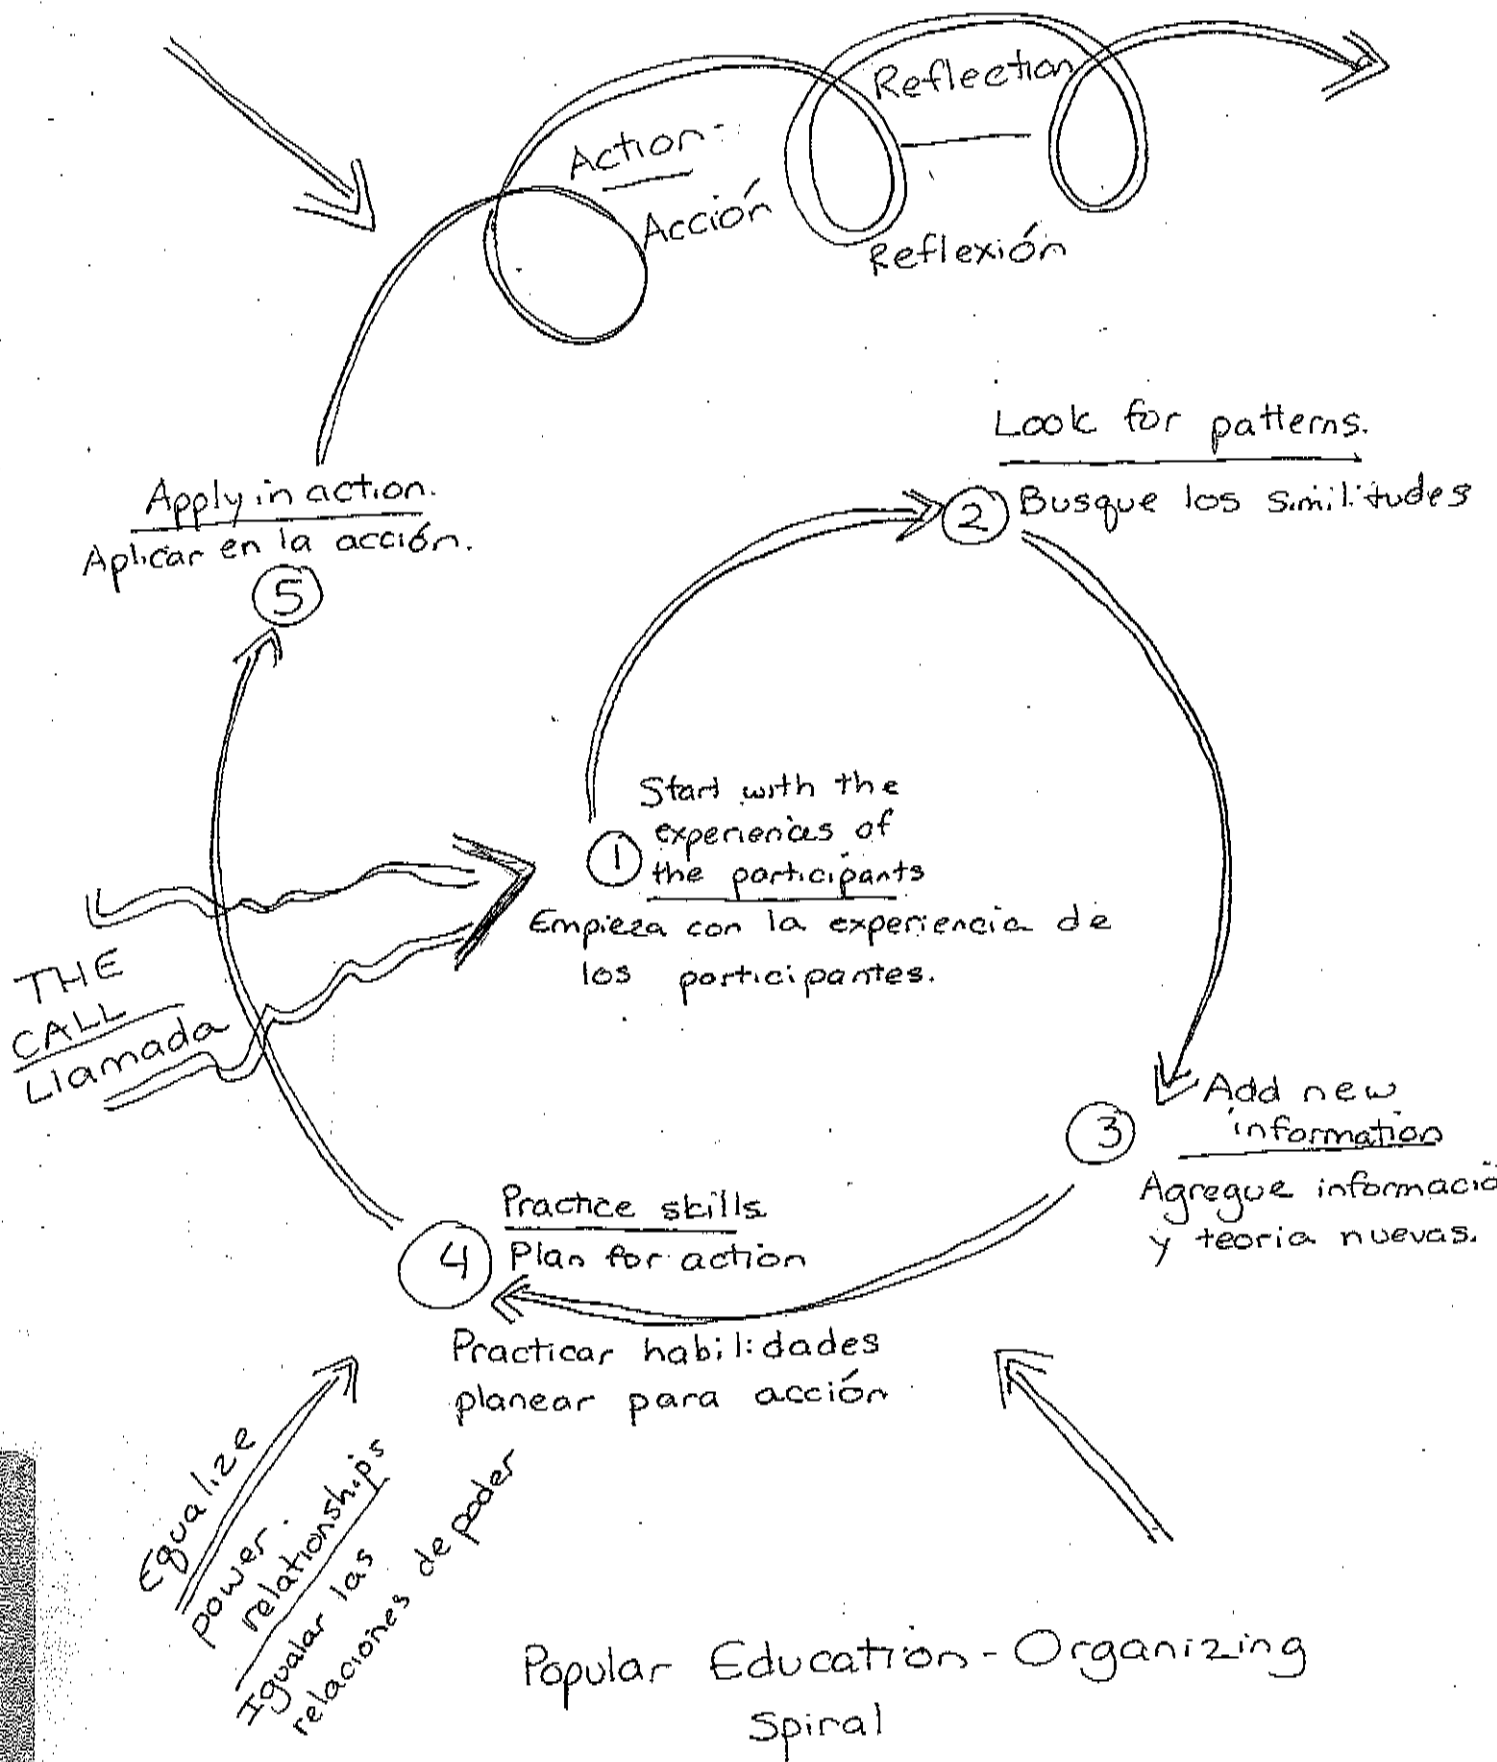 Reflection
Action -
Acción
Reflexión
Look for patterns.
② Busque los similitudes
Apply in action.
Aplicar en la acción.
⑤
Start with the
experiences of
① the participants
Empieza con la experiencia de
los participantes.
THE
CALL
Llamada
③ Add new
information
Agregue informació
y teoria nuevas.
Practice skills
④ Plan for action
Practicar habilidades
planear para acción
Equalize
power
relationships
Igualar las
relaciones de poder
Popular Education - Organizing
Spiral